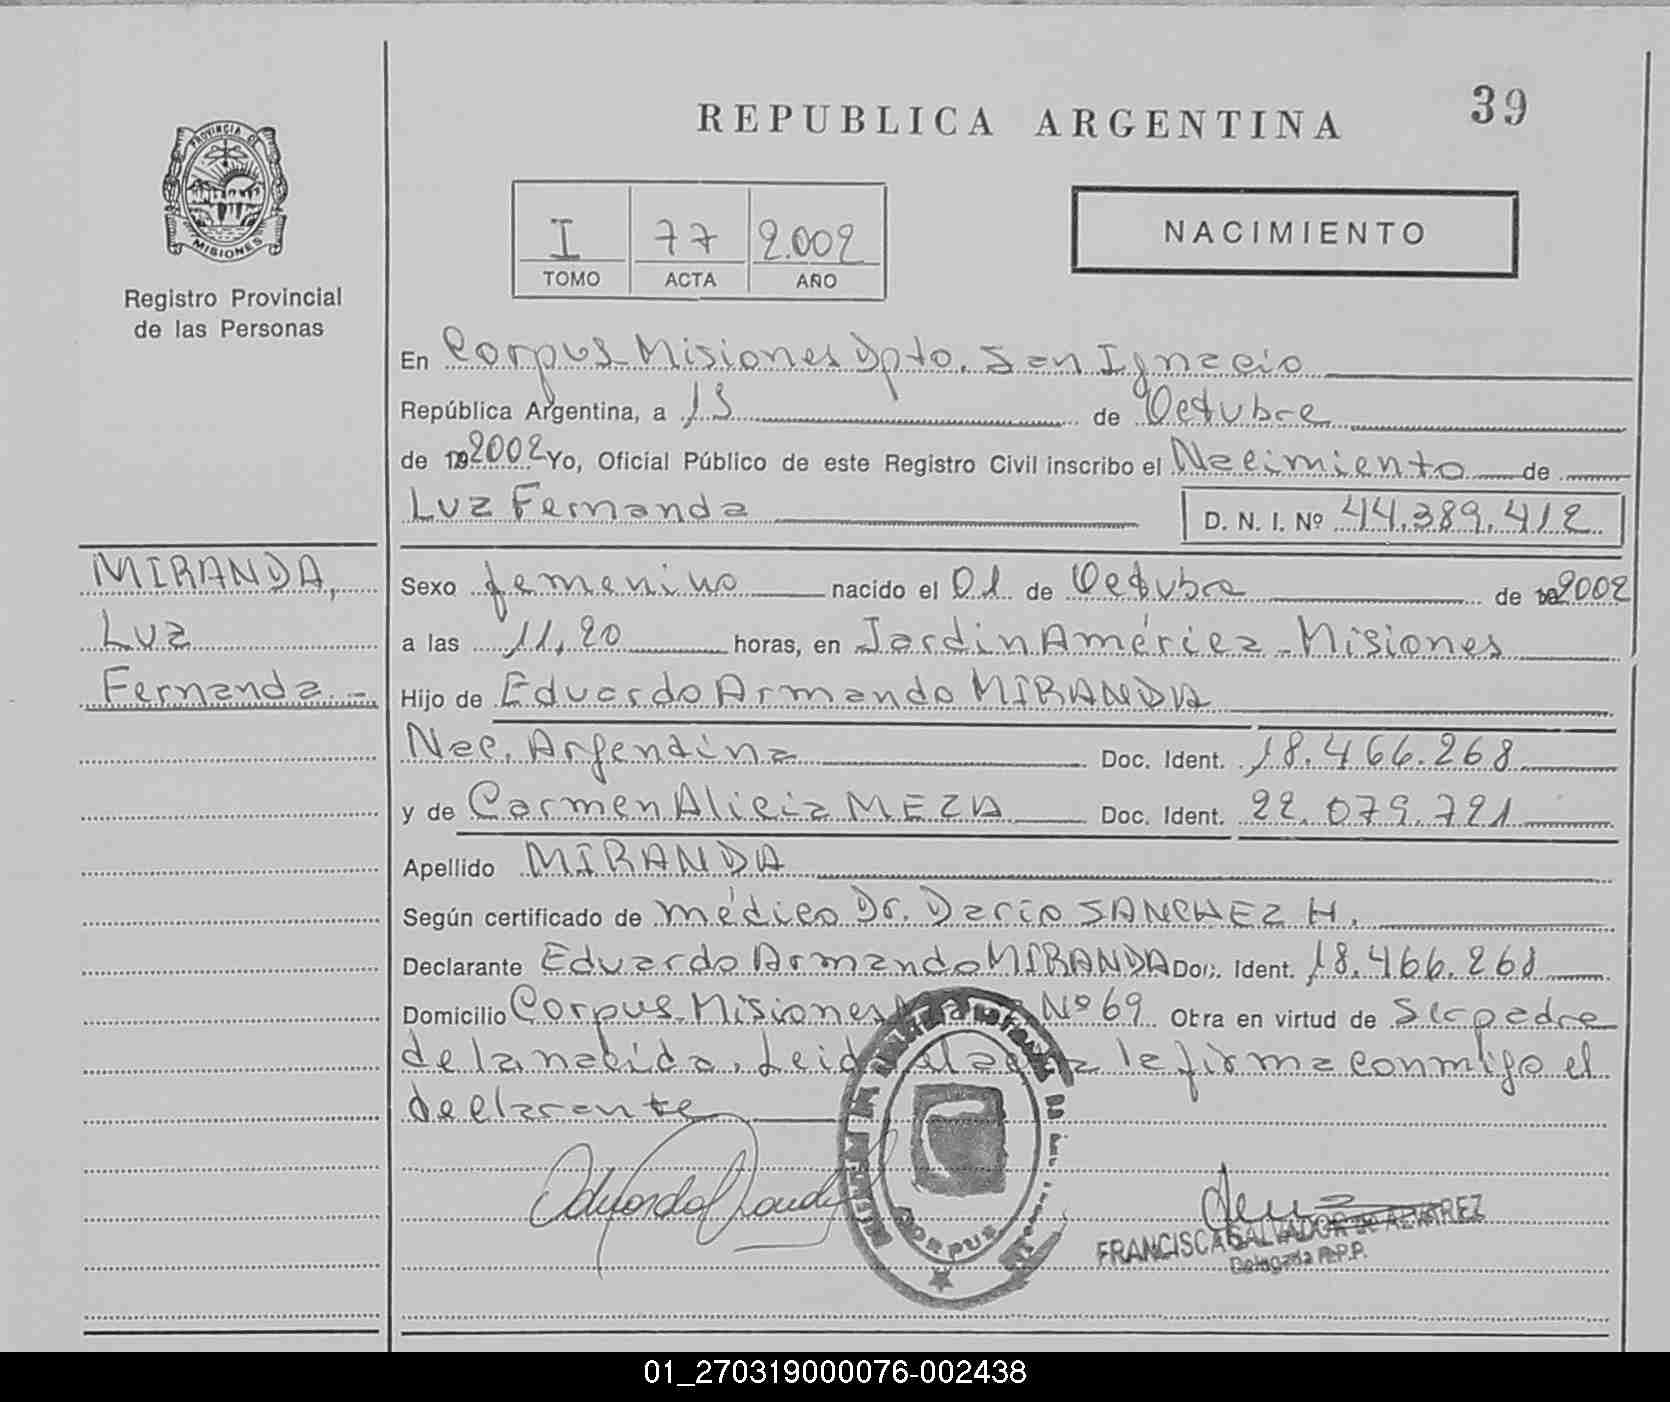 39
REPUBLICA ARGENTINA
PROVINCIA DE
MISIONES
Registro Provincial
de las Personas
I 77 2.002
TOMO ACTA AÑO
NACIMIENTO
En Corpus Misiones Dpto. San Ignacio
República Argentina, a 13 de Octubre
de 2002 Yo, Oficial Público de este Registro Civil inscribo el Nacimiento de
Luz Fernanda D. N. I. Nº 44.389.412
MIRANDA,
Luz
Fernanda.-
Sexo femenino nacido el 01 de Octubre de 2002
a las 11,20 horas, en Jardin América - Misiones
Hijo de Eduardo Armando MIRANDA
Nac. Argentina Doc. Ident. 18.466.268
y de Carmen Alicia MEZA Doc. Ident. 22.079.721
Apellido MIRANDA
Según certificado de médico Dr. Dario SANCHEZ H.
Declarante Eduardo Armando MIRANDA Doc. Ident. 18.466.268
Domicilio Corpus Misiones Nº 69 Obra en virtud de ser padre
de la nacida. Leida el acta la firma conmigo el
declarante
CORPUS
FRANCISCA SALVADOR de ALVAREZ
Delegada R.P.P.
01_270319000076-002438